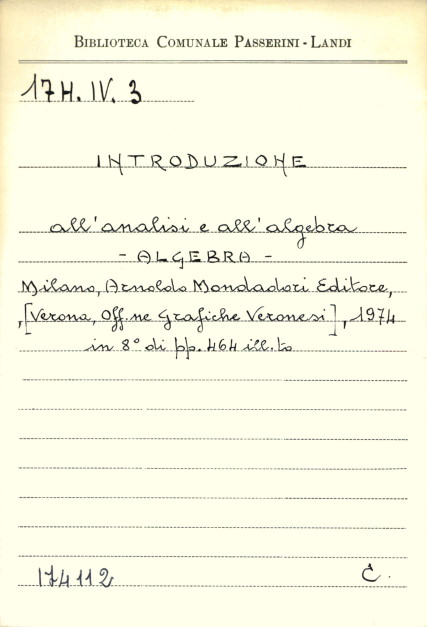 BIBLIOTECA COMUNALE PASSERINI - LANDI
17H. IV. 3
INTRODUZIONE
all'analisi e all'algebra
- ALGEBRA -
Milano, Arnoldo Mondadori Editore,
,[Verona, Off.ne Grafiche Veronesi], 1974
in 8° di pp. 464 ill.to
174112 C.